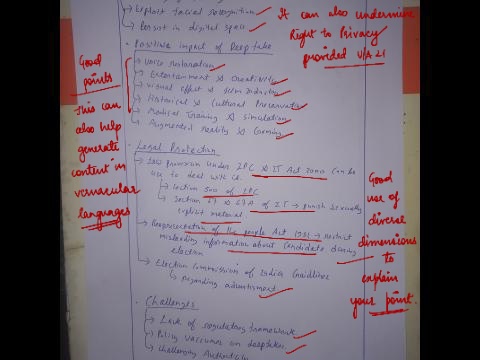 → Exploit facial recognition
→ Persist in digital space
It can also undermine
Right to Privacy
provided U/A 21
• Positive impact of Deepfake
→ Voice restoration
→ Entertainment & Creativity
→ Visual effect & Film Industry
→ Historical & Cultural Preservation
→ Medical Training & Simulation
→ Augmented reality & Gaming
Good
points
This can
also help
generate
content in
vernacular
languages
• Legal Protection
→ Law provision under IPC & IT Act 2000 can be
use to deal with it.
↳ Section 500 of IPC
↳ Section 67 & 67A of IT → punish sexually
explicit material
→ Representation of the people Act 1951 → restrict
misleading information about candidate during
election
→ Election Commission of India Guidlines
↳ regarding advertisment
Good
use of
diverse
dimensions
to
explain
your point.
• Challenges
→ Lack of regulatory framework
→ Policy vaccume on deepfakes
→ Challenging Authenticity